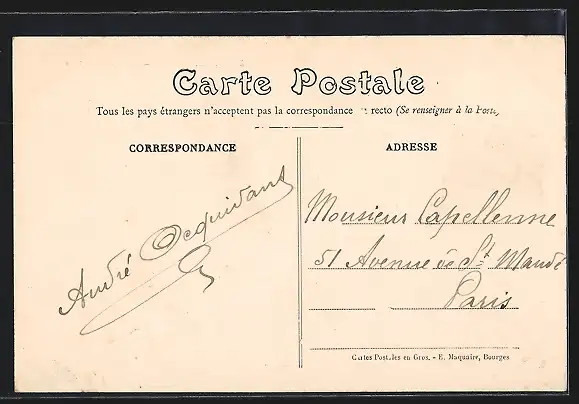 Carte Postale
Tous les pays étrangers n'acceptent pas la correspondance recto (Se renseigner à la Poste)
CORRESPONDANCE
André Decquivant
ADRESSE
Monsieur Capellenne
51 Avenue de St Mandé
Paris
Cartes Postales en Gros. - E. Maquaire, Bourges